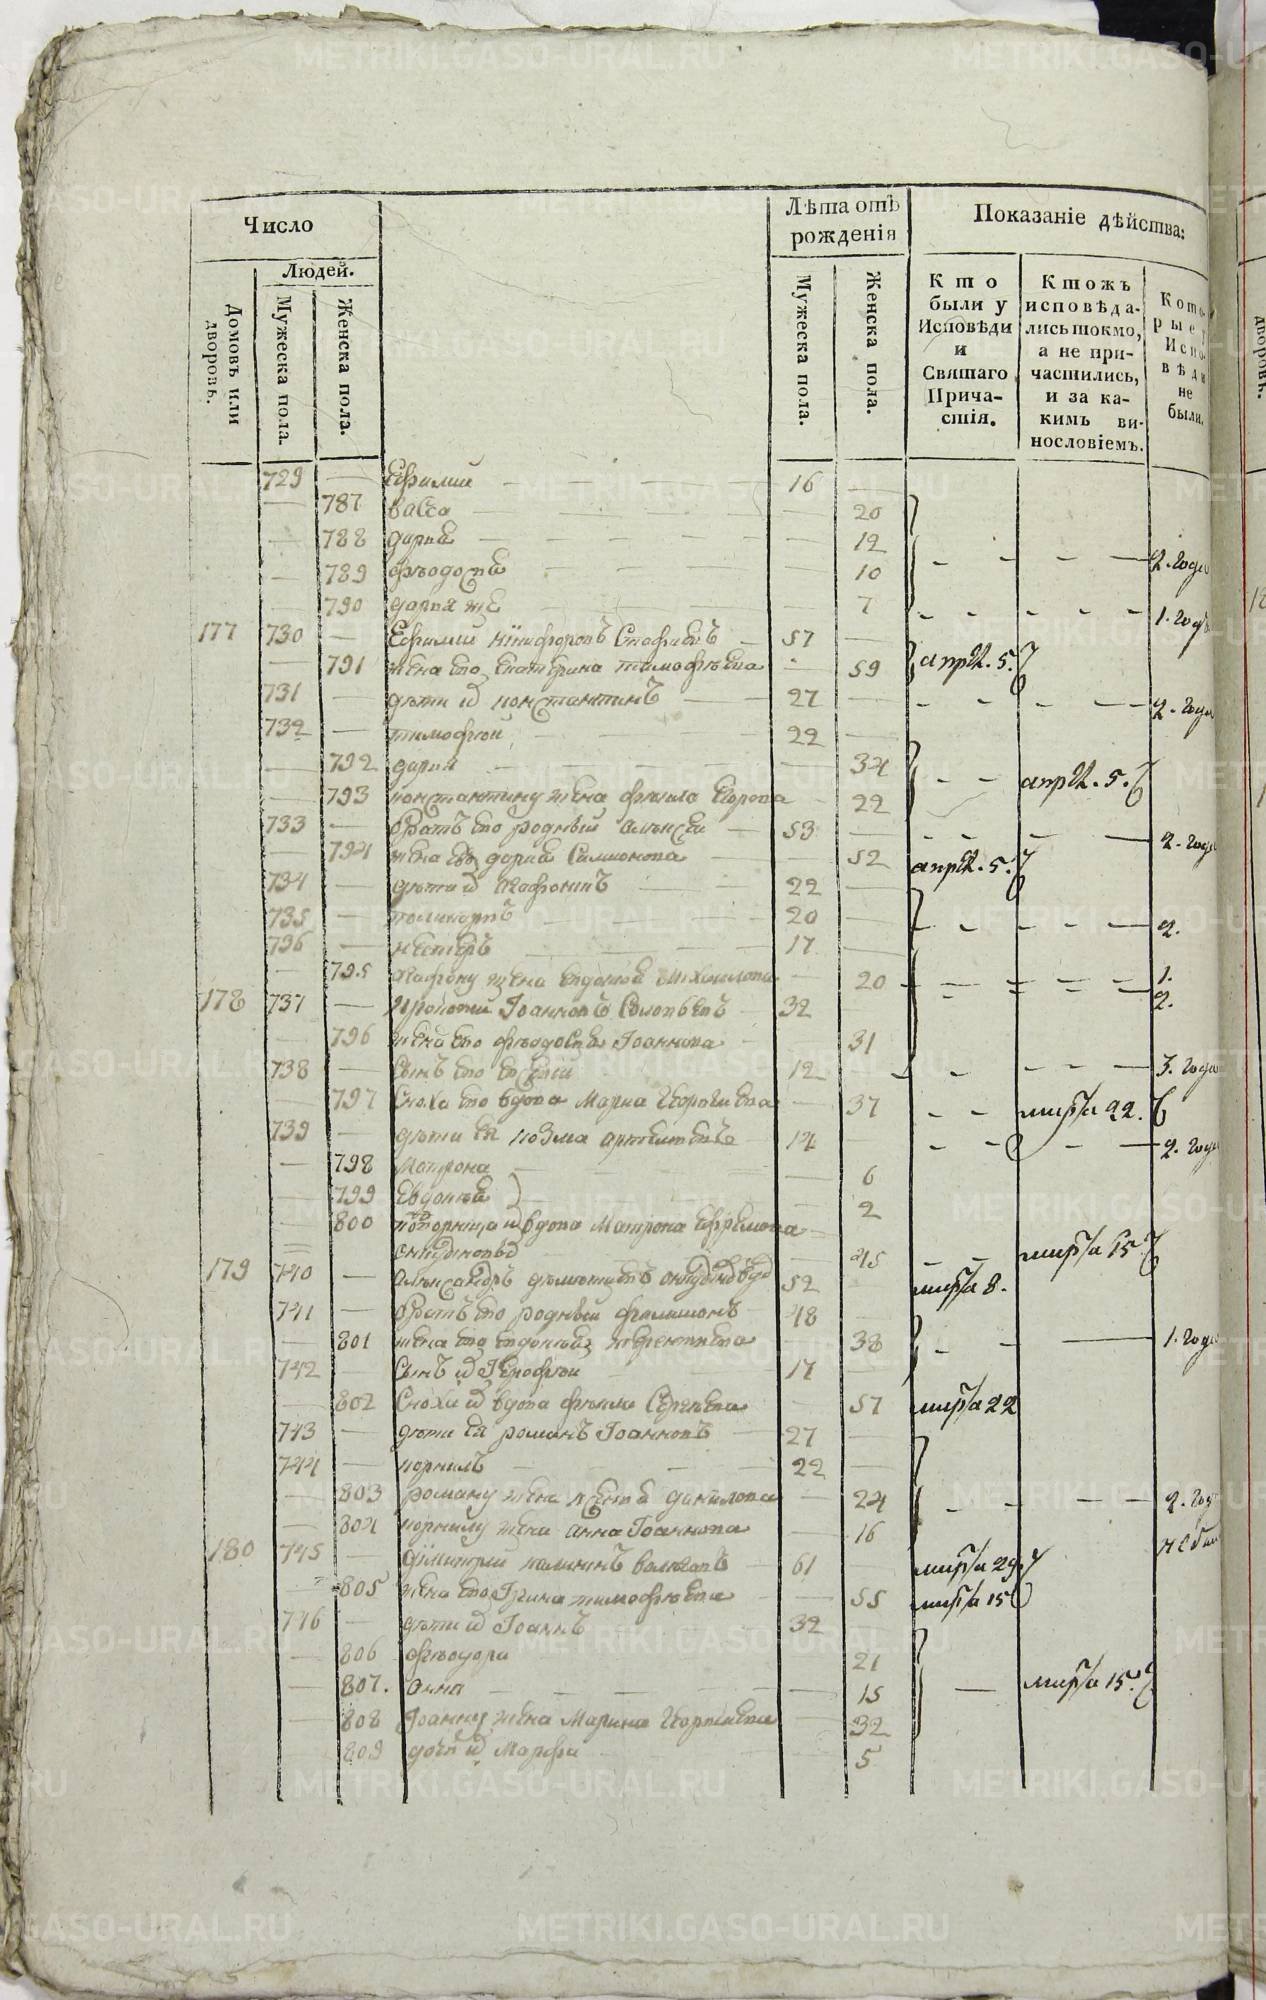 Число
Людей.
Домовъ или дворовъ.
Мужеска пола.
Женска пола.
Лѣта отъ рожденія
Мужеска пола.
Женска пола.
Показаніе дѣйства:
Кто были у Исповѣди и Святаго Причастія.
Ктожъ исповѣдались токмо, а не причастились, и за какимъ винословіемъ.
Которые у Исповѣди не были.
729 — Ефимий 16
787 васса 20
788 дария 12
789 фѣодосия 10 2. года
790 дария же 7 1. годъ
177 730 — Ефимий никифоровъ 57
791 жена его екатерина тимофѣева 59 апрѣл. 5.
731 — дѣти их константинъ 27 2. года
732 — тимофей 22
792 дария 34
793 константину жена фекла Егорова 22 апрѣл. 5.
733 — братъ его родный алексѣй 53 2. года
794 жена его дария Симионова 52 апрѣл. 5.
734 — дѣти их агафонъ 22
735 — поликарпъ 20 2.
736 — несторъ 17
795 жена евдокия михайлова 20 1.
178 737 — Прокопий Іоанновъ Соловьевъ 32 2.
796 жена его фѣодосия Іоаннова 31
738 — сынъ его 12 3. года
797 сноха его вдова Мария Георгиева 37 марта 22.
739 — дѣти ея козма 14 2. года
798 матрона 6
799 Евдокия 2
800 вдова Матрона Ефремова 45 марта 15.
179 740 — александръ 52 марта 8.
741 — братъ его родный филимонъ 48
801 жена его евдокия 38 1. годъ
742 — сынъ их 17
802 сноха их вдова фекла Сергеева 57 марта 22
743 — дѣти ея романъ Іоанновъ 27
744 — корнилъ 22
803 роману жена ксения данилова 24 2. года
804 корнилу жена анна Іоаннова 16
180 745 — димитрий калининъ 61 марта 29
805 жена его Ирина тимофѣева 55 марта 15
746 — дѣти их Іоаннъ 32
806 фѣодора 21
807. анна 15 марта 15.
808 Іоанну жена Марина Георгиева 32
809 дочь их Марфа 5
METRIKI.GASO-URAL.RU